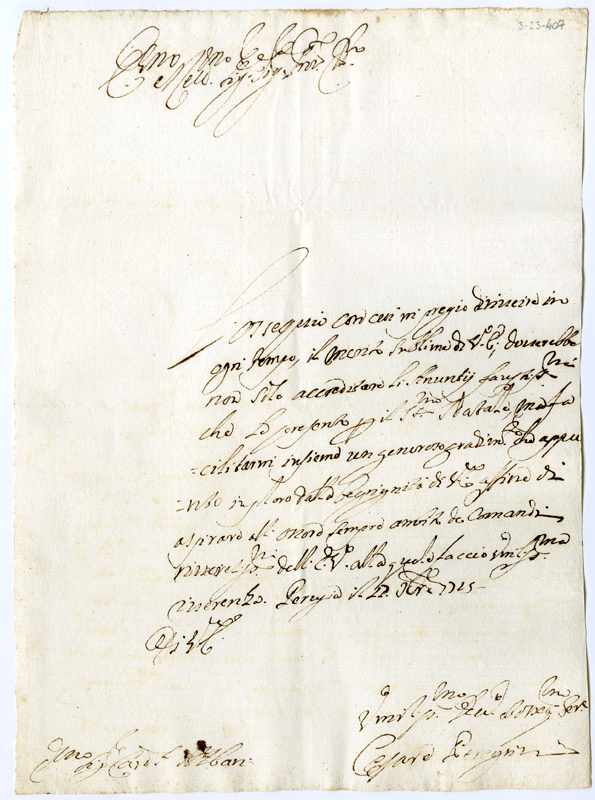 3-23-407
L'ossequio con cui mi pregio di riverire in
ogni tempo, il merito sublime di V. E., dovrebbe
non solo accreditare li Anuntij faustiss.mi
che Le presento p il S.mo Natale, mà fa
=cilitarmi insieme un generoso gradim.to che appu
=nto imploro dalla Benignità di V. E. affine di
aspirare all' onore sempre ambito de Comandi
riveritiss.mi dell' E. V. alla quale faccio umiliss.ma
riverenza. Perugia il 22 Xbre 1725
Di V. E.
Umiliss.mo Dev.mo Obblig.mo Ser.re
Cesare
E.mo Sig. Card.l Alban